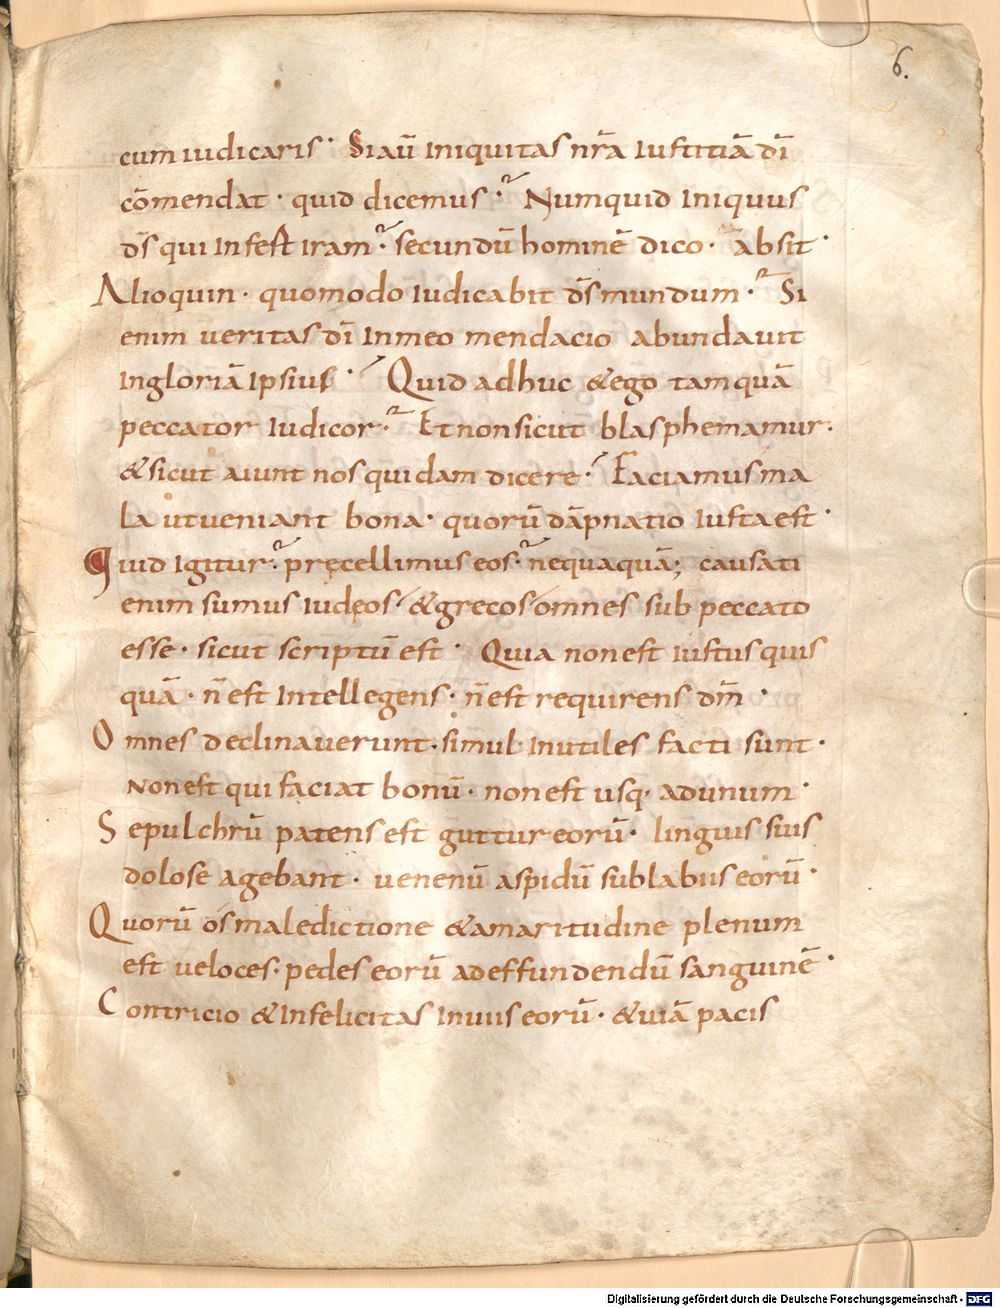 6.
cum iudicaris · Si aū iniquitas nr̄a iustitiā dī
cōmendat · quid dicemus ·? Numquid iniquus
dс̄ qui infest iram ·? secundū hominē dico · absit ·
Alioquin · quomodo iudicabit ds̄ mundum ·? Si
enim veritas dī in meo mendacio abundavit
in gloriā ipsius · Quid adhuc & ego tamquā
peccator iudicor ·? Et non sicut blasphemamur ·
& sicut aiunt nos quidam dicere · Faciamus ma
la ut veniant bona · quorū dāpnatio iusta est ·
Quid igitur ·? pręcellimus eos ·? nequaquā; causati
enim sumus iudęos & grecos omnes sub peccato
esse · sicut scriptū est · Quia non est iustus quis
quā · n̄ est intellegens · n̄ est requirens dm̄ ·
Omnes declinaverunt · simul inutiles facti sunt ·
Non est qui faciat bonū · non est usq· ad unum ·
Sepulchrū patens est guttur eorū · linguis suis
dolose agebant · venenū aspidū sub labiis eorū ·
Quorū os maledictione & amaritudine plenum
est veloces · pedes eorū ad effundendū sanguinē ·
Contricio & infelicitas in viis eorū · & viā pacis
Digitalisierung gefördert durch die Deutsche Forschungsgemeinschaft - DFG